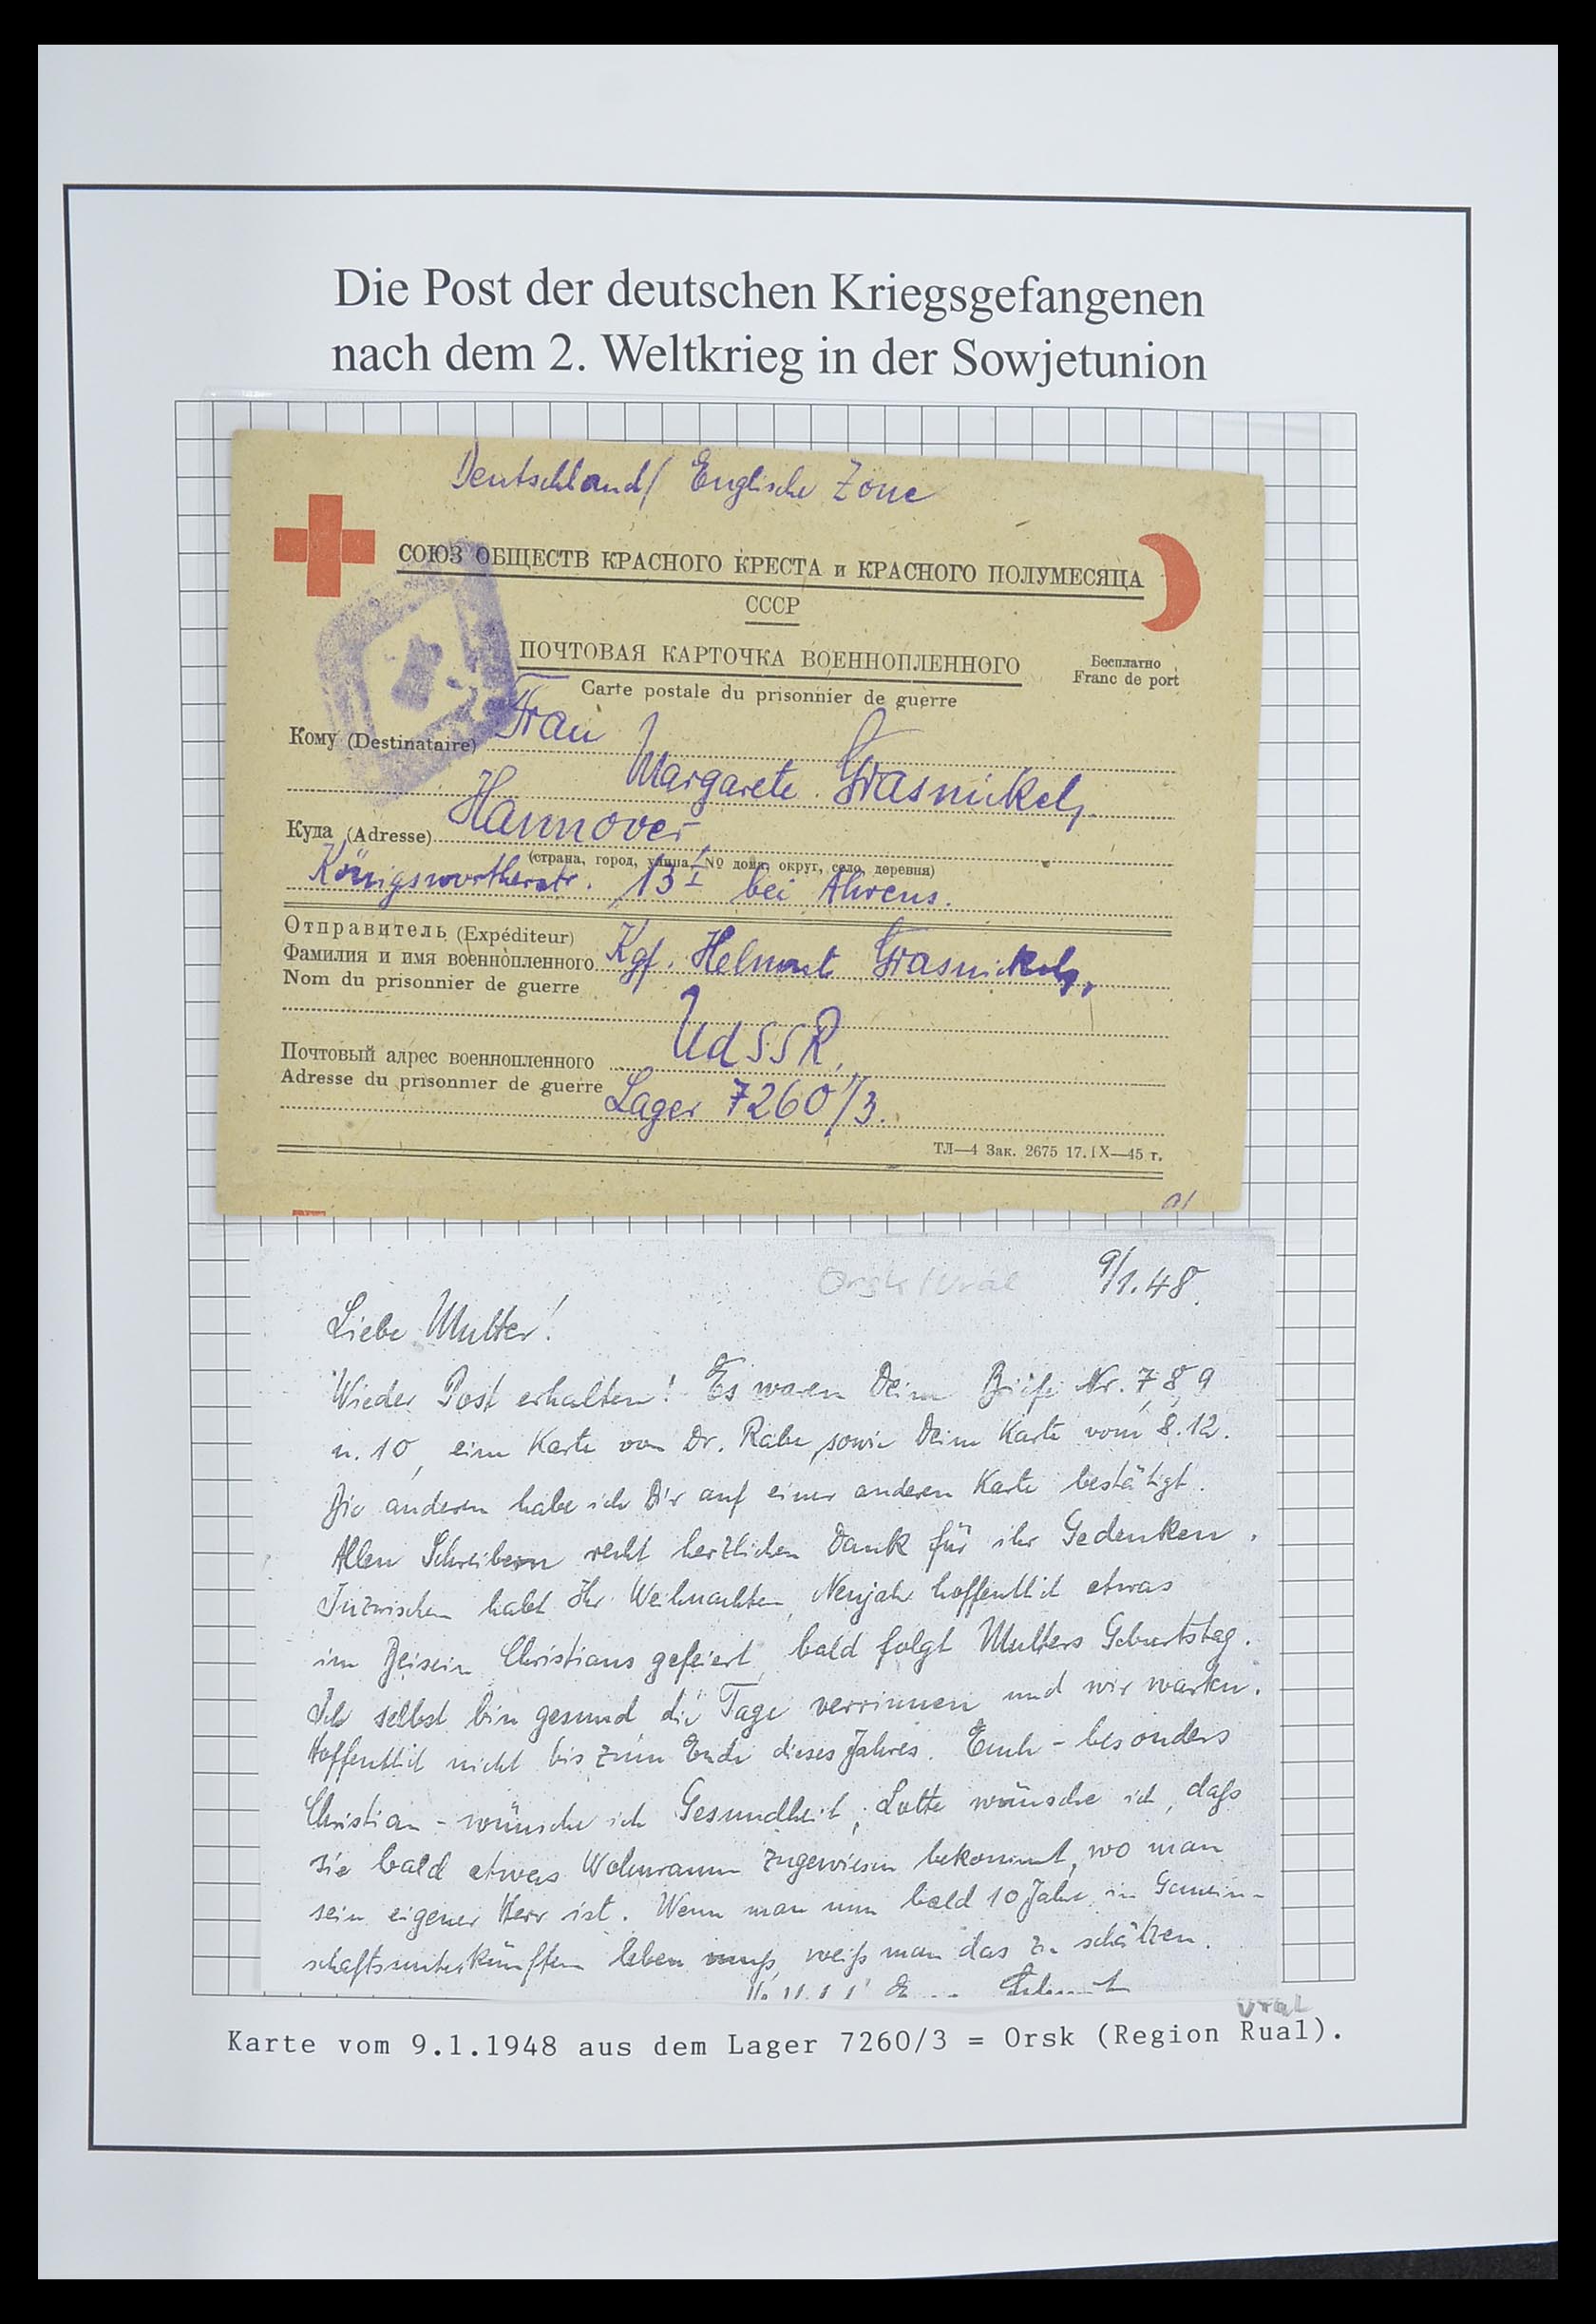 Die Post der deutschen Kriegsgefangenen
nach dem 2. Weltkrieg in der Sowjetunion
Deutschland/ Englische Zone
СОЮЗ ОБЩЕСТВ КРАСНОГО КРЕСТА и КРАСНОГО ПОЛУМЕСЯЦА
СССР
ПОЧТОВАЯ КАРТОЧКА ВОЕННОПЛЕННОГО
Бесплатно
Franc de port
Carte postale du prisonnier de guerre
Кому (Destinataire) Frau
Margarete Grasnickel,
Куда (Adresse) Hannover,
(страна, город, улица, № дома, округ, село, деревня)
Königswortherstr. 13 I bei Ahrens.
Отправитель (Expéditeur)
Фамилия и имя военнопленного Kgf. Helmut Grasnickel,
Nom du prisonnier de guerre
UdSSR,
Почтовый адрес военнопленного
Adresse du prisonnier de guerre Lager 7260/3.
ТЛ—4 Зак. 2675 17.IX—45 г.
Orsk/Ural 9/1.48.
Liebe Mutter!
Wieder Post erhalten! Es waren Deine Briefe Nr. 7, 8, 9
u. 10, eine Karte von Dr. Rabe, sowie Deine Karte vom 8.12.
Die anderen habe ich Dir auf einer anderen Karte bestätigt.
Allen Schreibern recht herzlichen Dank für ihr Gedenken.
Inzwischen habt Ihr Weihnachten, Neujahr hoffentlich etwas
im Beisein Christians gefeiert, bald folgt Mutters Geburtstag.
Ich selbst bin gesund, die Tage verrinnen und wir warten.
Hoffentlich nicht bis zum Ende dieses Jahres. Euch - besonders
Christian - wünsche ich Gesundheit, Lotte wünsche ich, daß
sie bald etwas Wohnraum zugewiesen bekommt, wo man
sein eigener Herr ist. Wenn man nun bald 10 Jahre in Gemein-
schaftsunterkünften leben muß, weiß man das zu schätzen.
Helmut
Ural
Karte vom 9.1.1948 aus dem Lager 7260/3 = Orsk (Region Rual).